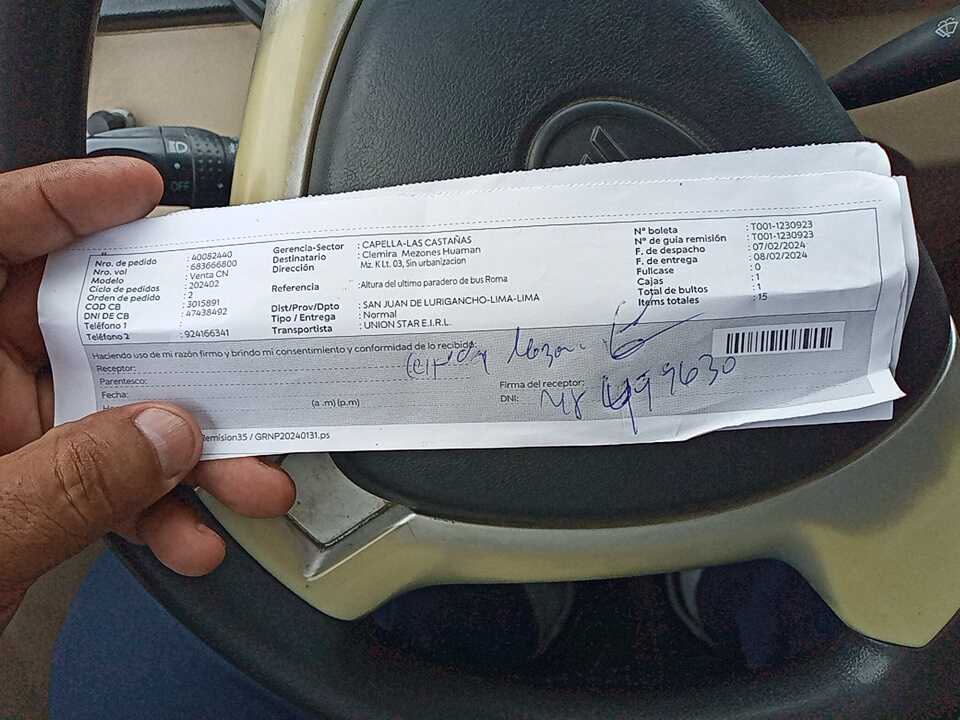 Nro. de pedido : 40082440
Nro. vol : 683666800
Modelo : Venta CN
Ciclo de pedidos : 202402
Orden de pedido : 2
COD CB : 3015891
DNI DE CB : 47438492
Teléfono 1 :
Teléfono 2 : 924166341
Gerencia-Sector : CAPELLA-LAS CASTAÑAS
Destinatario : Clemira Mezones Huaman
Dirección Mz. K Lt. 03, Sin urbanizacion
Referencia :Altura del ultimo paradero de bus Roma
Dist/Prov/Dpto : SAN JUAN DE LURIGANCHO-LIMA-LIMA
Tipo / Entrega : Normal
Transportista : UNION STAR E.I.R.L.
N° boleta : T001-1230923
N° de guia remisión : T001-1230923
F. de despacho : 07/02/2024
F. de entrega : 08/02/2024
Fullcase : 0
Cajas : 1
Total de bultos : 1
Items totales : 15
Haciendo uso de mi razón firmo y brindo mi consentimiento y conformidad de lo recibido:
Receptor:
Parentesco:
Fecha:
(a .m) (p.m)
Firma del receptor:
DNI: 48499630
Remision35 / GRNP20240131.ps
OFF